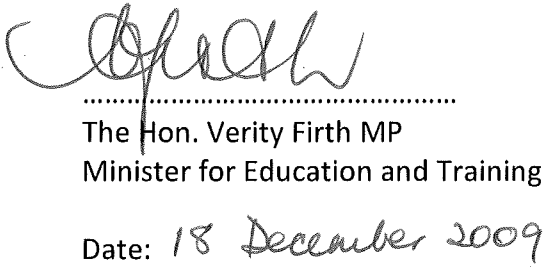 The Hon. Verity Firth MP
Minister for Education and Training
Date: 18 December 2009